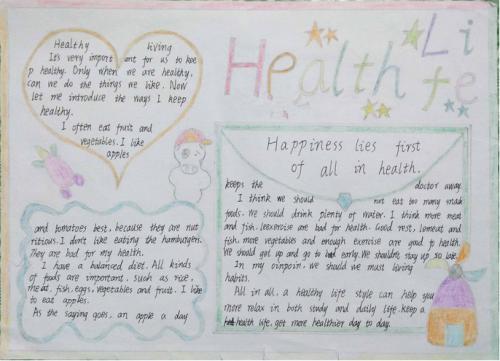 Health Life
Healthy living
It's very import ant for us to kee
p healthy. Only when we are healthy,
can we do the things we like. Now
let me introduce the ways I keep
healthy.
I often eat fruit and
vegetables. I like
apples
and tomatoes best, because they are nut
ritious. I don't like eating the hamburgers.
They are bad for my health.
I have a balanced diet. All kinds
of foods are important, such as rice,
meat, fish, eggs, vegetables and fruit. I like
to eat apples.
As the saying goes, an apple a day
Happiness lies first
of all in health.
keeps the doctor away.
I think we should not eat too many snack
foods. We should drink plenty of water. I think more meat
and fish, lesexercise are bad for health. Good rest, lemeat and
fish, more vegetables and enough exercise are good to health.
We should get up and go to bed early. We shouldn't stay up so late.
In my oinpoin, we should we must living
habits.
All in all, a healthy life style can help you
more relax in both study and daily life. keep a
health life, get more healthier day to day.